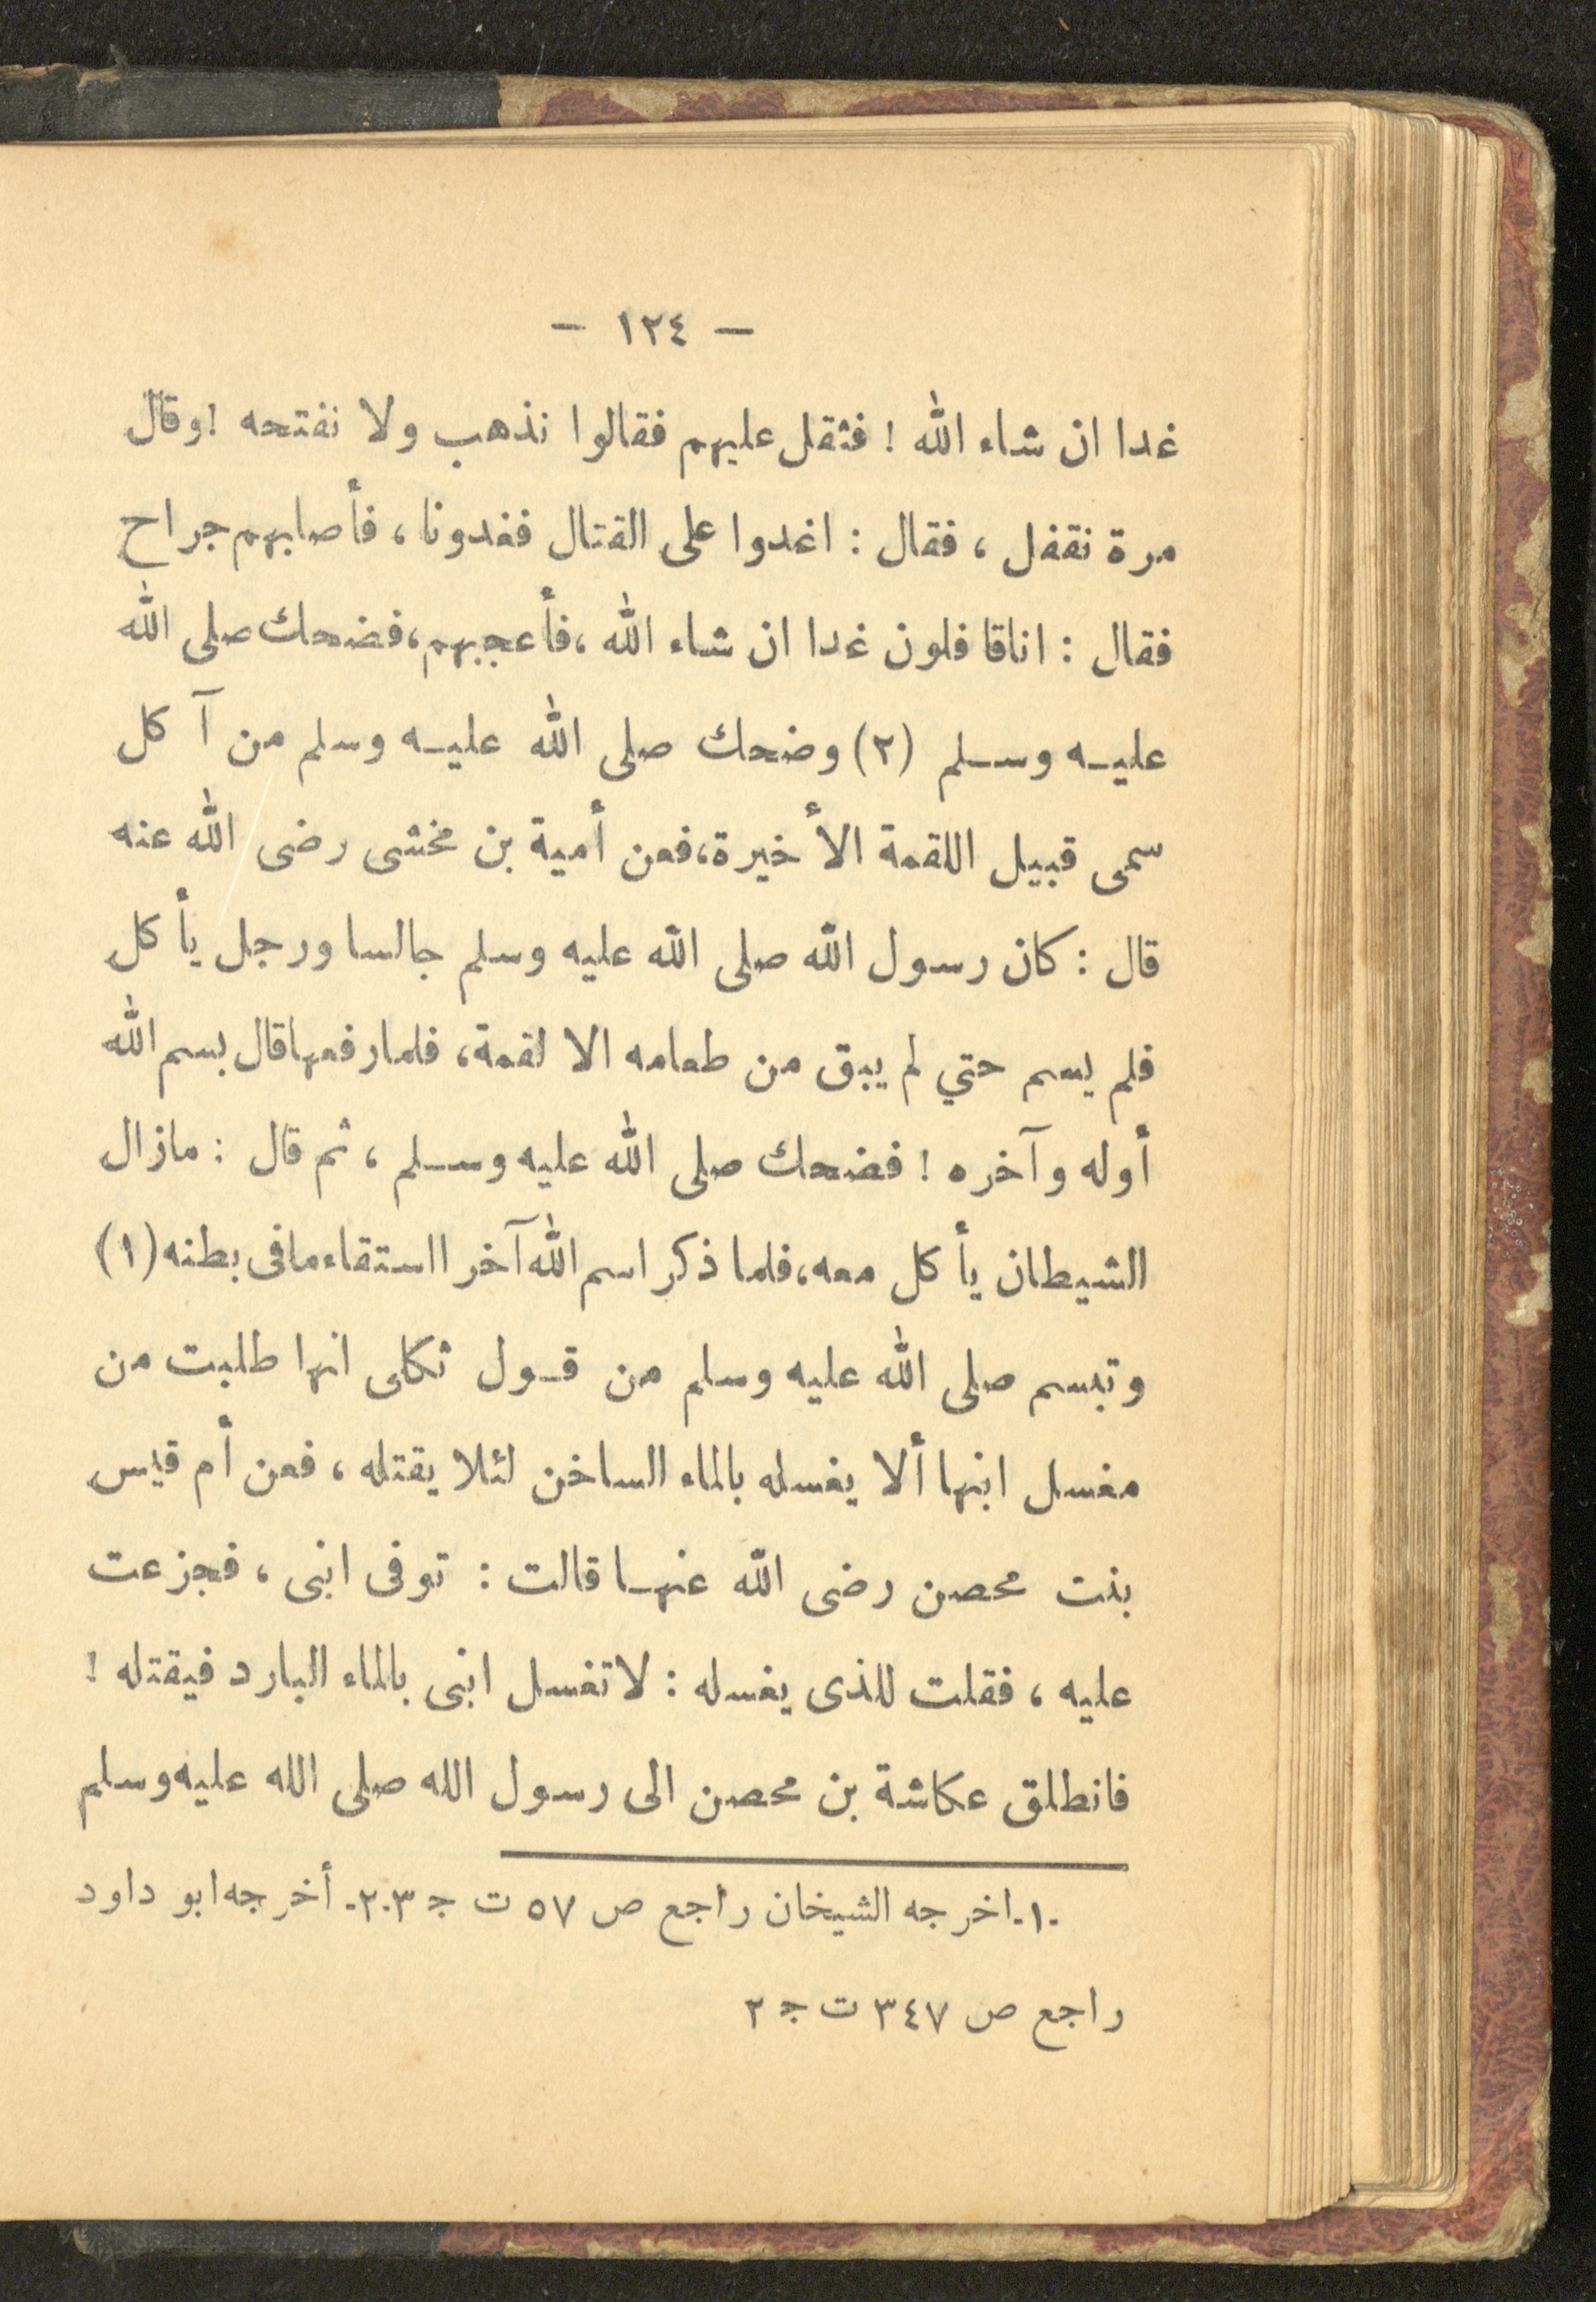 — ١٢٤ —
غدا ان شاء الله ! فثقل عليهم فقالوا نذهب ولا نفتحه ! وقال
مرة نقفل ، فقال : اغدوا على القتال فغدونا ، فأصابهم جراح
فقال : انا قافلون غدا ان شاء الله ، فأعجبهم ، فضحك صلى الله
عليه وسلم (٢) وضحك صلى الله عليه وسلم من آكل
سمى قبيل اللقمة الأخيرة ، فعن أمية بن مخشى رضى الله عنه
قال : كان رسول الله صلى الله عليه وسلم جالسا ورجل يأكل
فلم يسم حتي لم يبق من طعامه الا لقمة ، فلما رفعها قال بسم الله
أوله وآخره ! فضحك صلى الله عليه وسلم ، ثم قال : مازال
الشيطان يأكل معه ، فلما ذكر اسم الله آخر ااستقاء مافى بطنه (١)
وتبسم صلى الله عليه وسلم من قول ثكلى انها طلبت من
مغسل ابنها ألا يغسله بالماء الساخن لئلا يقتله ، فعن أم قيس
بنت محصن رضى الله عنها قالت : توفى ابنى ، فجزعت
عليه ، فقلت للذى يغسله : لا تغسل ابنى بالماء البارد فيقتله !
فانطلق عكاشة بن محصن الى رسول الله صلى الله عليه وسلم
-١- اخرجه الشيخان راجع ص ٥٧ ت ج ٣ -٢- أخرجه ابو داود
راجع ص ٣٤٧ ت ج ٢